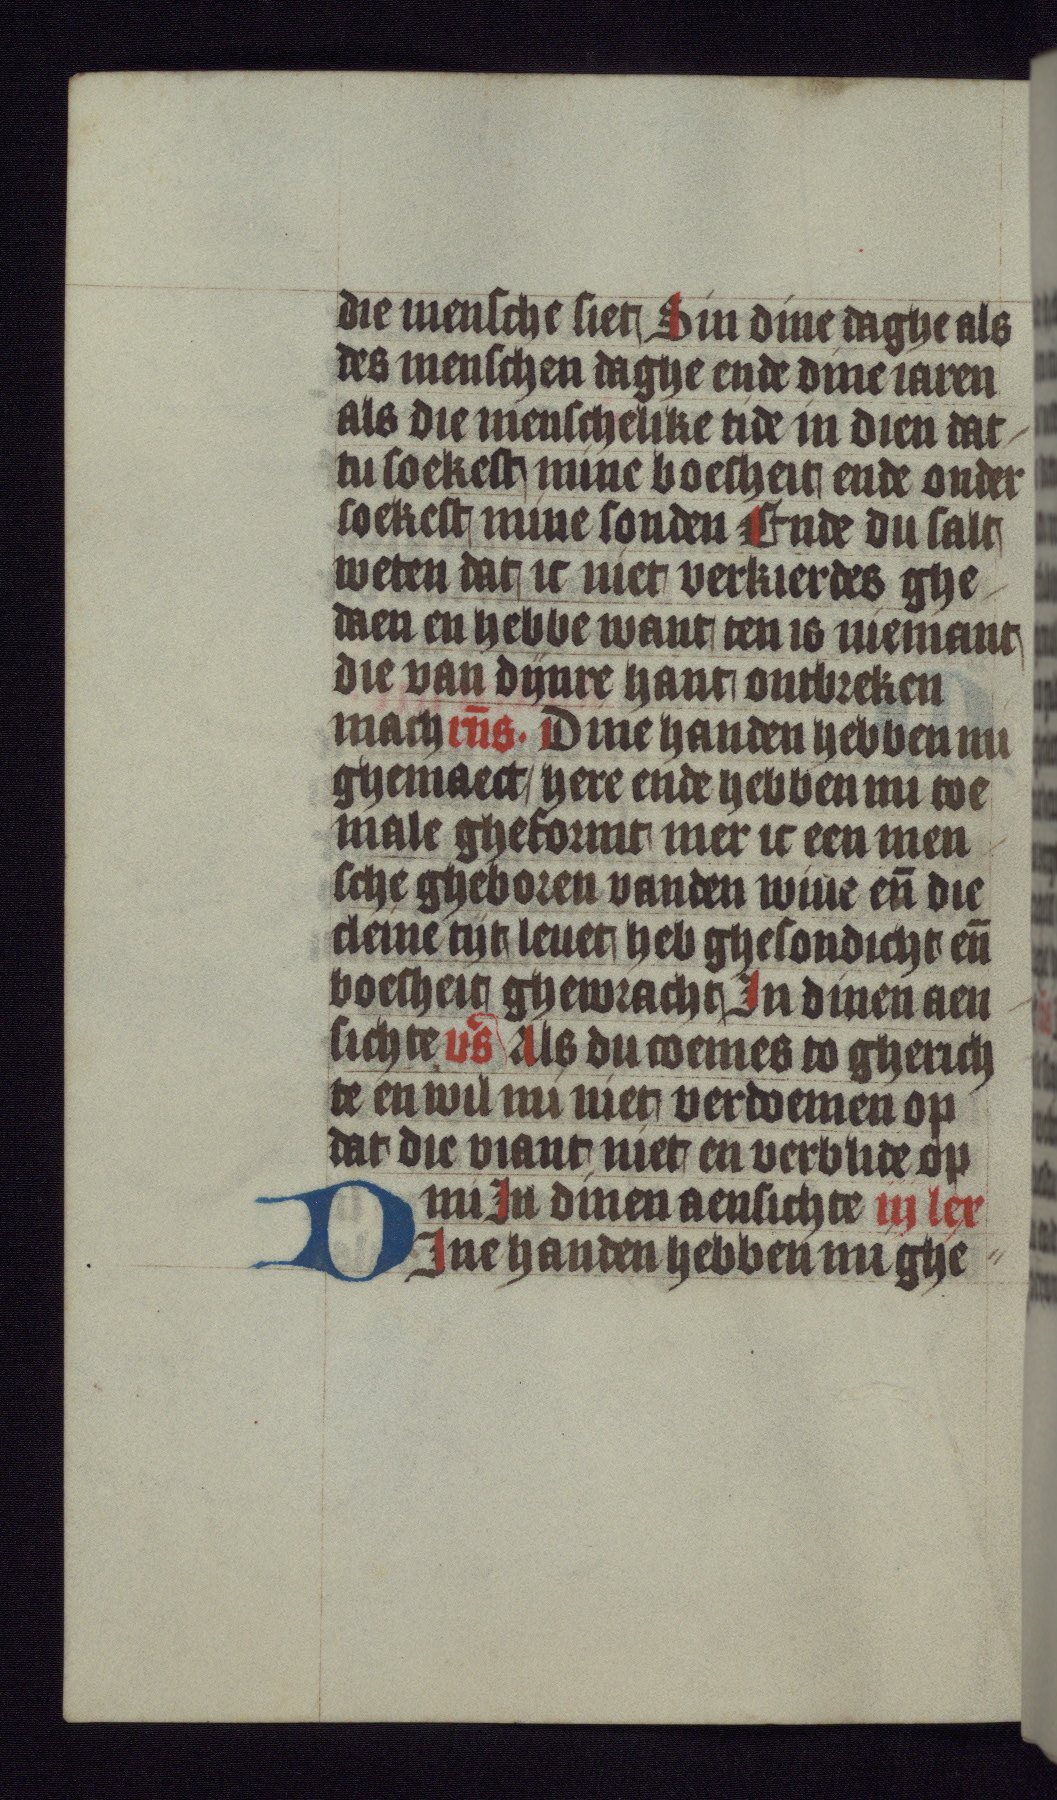 die mensche siet Sin dine daghe als
des menschen daghe ende dine iaren
als die menschelike tide in dien dat
tu soekest mine boesheit ende onder
soekest mine sonden Ende du salt
weten dat ic niet verkierdes ghe
daen en hebbe want ten is niemant
die van dijnre hant ontbreken
mach rn̄s. Dine handen hebben mi
ghemaect here ende hebben mi toe
male gheformt mer ic een men
sche gheboren vanden wiue en̄ die
cleine tijt leuet heb ghesondicht en̄
boesheit ghewracht In dinen aen
sichte vs̄ Als du coemes to gherich
te en wil mi niet verdoemen op
dat die viant niet en verblide op
mi In dinen aensichte iij lex
DIne handen hebben mi ghe